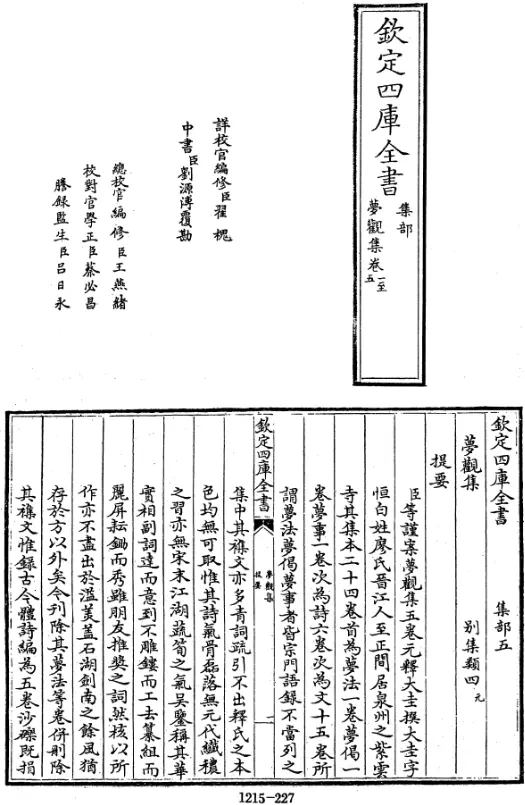 欽定四庫全書
集部
夢觀集卷一至五
詳校官編修臣翟槐
中書臣劉源溥覆勘
總校官編修臣王燕緒
校對官學正臣蔡必昌
謄錄監生臣呂日永
欽定四庫全書
集部五
夢觀集
別集類四元
提要
臣等謹案夢觀集五卷元釋大圭撰大圭字
恒白姓廖氏晉江人至正間居泉州之紫雲
寺其集本二十四卷首為夢法一卷夢偈一
卷夢事一卷次為詩六卷次為文十五卷所
謂夢法夢偈夢事者皆宗門語錄不當列之
欽定四庫全書
夢觀集
提要
一
集中其襍文亦多青詞疏引不出釋氏之本
色均無可取惟其詩氣骨磊落無元代纖穠
之習亦無宋末江湖蔬筍之氣吳鑒稱其華
實相副詞達而意到不雕鏤而工去纂組而
麗屏耘鋤而秀雖朋友推奬之詞然核以所
作亦不盡出於濫美葢石湖劍南之餘風猶
存於方以外矣今刊除其夢法等卷併刪除
其襍文惟錄古今體詩編為五卷沙礫既捐
1215-227